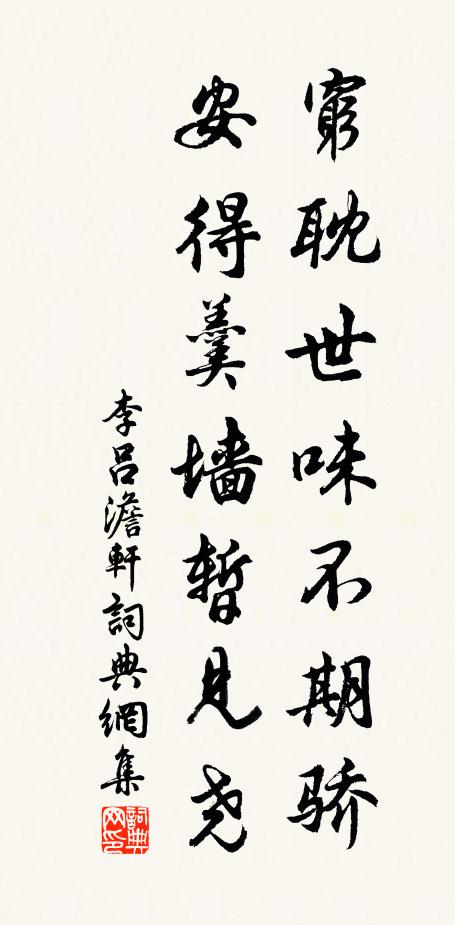 窮耽世味不期骄
安得羹墙暫見尧
李吕澹軒詞典網集
詞典网印